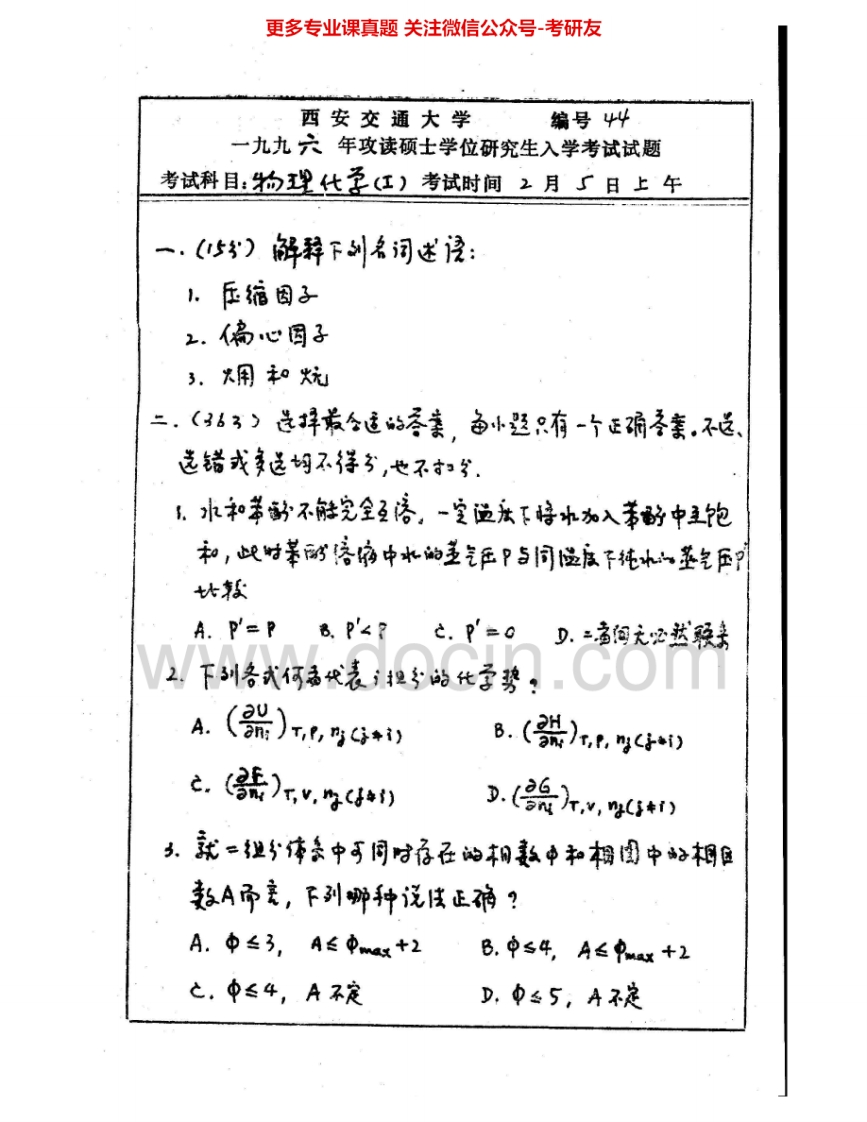 更多专业课真题 关注微信公众号-考研友
西安交通大学 编号 44
一九九六年攻读硕士学位研究生入学考试试题
考试科目:物理化学(I) 考试时间 2 月 5 日上午
一.(15分) 解释下列名词述语:
1. 压缩因子
2. 偏心因子
3. 㶲和㶲
二.(36分) 选择最合适的答案,每小题只有一个正确答案。不选、
选错或多选均不得分,也不扣分.
1. 水和苯酚不能完全互溶。一定温度下将水加入苯酚中至饱
和,此时苯酚溶液中水的蒸气压P与同温度下纯水的蒸气压P'
比较
A. P'=P B. P'<P C. P'=0 D. 二者间无必然联系
www.docin.com
2. 下列各式何者代表i组分的化学势?
A. (∂U/∂nᵢ)T,P,nj(j≠i) B. (∂H/∂nᵢ)T,P,nj(j≠i)
C. (∂F/∂nᵢ)T,V,nj(j≠i) D. (∂G/∂nᵢ)T,V,nj(j≠i)
3. 就二组分体系中可同时存在的相数Φ和相图中的相区
数A而言,下列哪种说法正确?
A. Φ≤3, A≤Φmax+2 B. Φ≤4, A≤Φmax+2
C. Φ≤4, A不定 D. Φ≤5, A不定